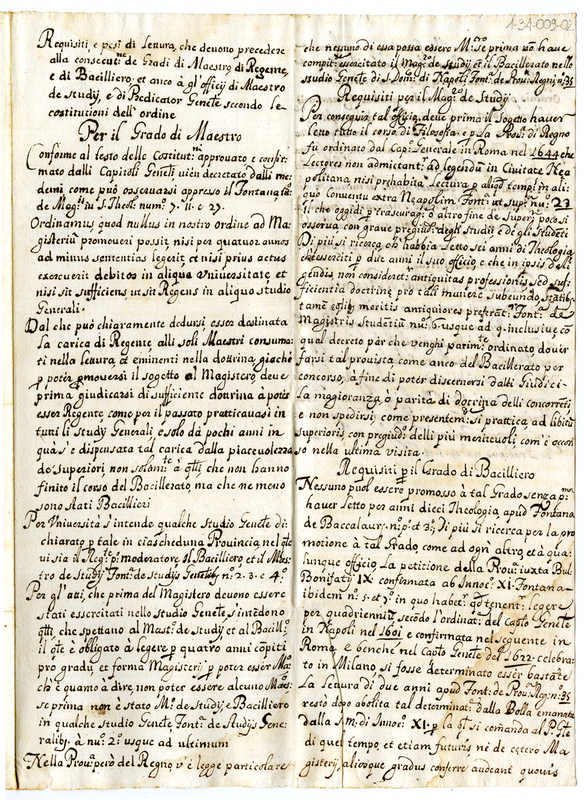 1-34-009-02
Requisiti, e pesi di Lettura, che deuono precedere
alla consecut.ne de Gradi di Maestro di Regente,
e di Bacilliero, et anco à gl'officij di Maestro
de Studij, e di Predicator Gen̄le secondo le
costitutioni dell'ordine
Per il Grado di Maestro
Conforme al testo delle Costitut.ni approuato e confir-
mato dalli Capitoli Gen̄li uien decretato dalli me-
demi come può osseruarsi appresso il Fontana tit.
de Mag.ris in S. Theol. num. 7. 11. e 27.
Ordinamus quod nullus in nostro ordine ad Ma-
gisterium promoueri possit, nisi per quatuor annos
ad minus sententias legerit, et nisi prius actus
exercuerit debitos in aliqua Vniuersitate, et
nisi sit sufficiens ut sit Regens in aliquo studio
Generali.
Dal che può chiaramente dedursi esser destinata
la carica di Regente alli soli Maestri consuma-
ti nella Lettura, et eminenti nella dottrina, giache
p poter p̄mouersi il sogetto al Magistero, deue
prima giudicarsi di sufficiente dottrina à poter
esser Regente come per il passato pratticauasi in
tutti li Studij Generali, e solo da pochi anni in
quà s'è dispensata tal carica dalla piaceuolezza
de superiori, non solam.te à q̄lli che non hanno
finito il corso del Bacillerato, ma che ne meno
sono stati Bacillieri
Per Vniuersità s'intende qualche Studio Gen̄le di-
chiarato p tale in ciascheduna Prouincia, nel q̄le
ui sia il Reg.te p.o moderatore, il Bacilliero, et il Maes-
tro de Studij. Font.a de Studijs Gen̄libus n.o 2. 3. e 4.o
Per gl'atti, che prima del Magistero deuono essere
stati essercitati nello Studio Gen̄le, s'intēdono
q̄lli, che spettano al Mast.o de Studij, et al Bacill.o
il q̄le è obligato à legere p quatro anni cōpiti
pro gradu, et forma Magisterij p poter esser Ma-
ch'è quanto à dire, non poter essere alcuno Maes.o
se prima non è stato M.o de Studij, e Bacilliero
in qualche Studio Gen̄le, Font.a de Studijs Gene-
ralib. à nu.o 2.o usque ad ultimum
Nella Prou.a però del Regno, v'è legge particolare
che nessuno di essa possa essere M.ro se prima nō haue
compit.te essercitato il Mag.o de studij, et il Bacillerato nello
studio Gen̄le di S. Dom.co di Napoli. Font.a de Prou.a Regni n.o 35
Requisiti per il Mag.o de Studij
Per conseguir tal officio, deue prima il sogetto hauer
letto tutto il corso di Filosofia, e p la Prou.a di Regno
fu ordinato dal Cap.o Generale in Roma nel 1644 che
Lectores non admictant.r ad legendū in Ciuitate Nea-
politana, nisi prehabita Lectura p aliq̄d temp.s in ali-
quo Conuentu extra Neapolim Font.a ut sup.a nu.o 23
il che oggidì p trascuragg.e ò altro fine de Superi.ri poco si
osserua con graue pregiud.o degli Studij e de gli Studēti
Di più si ricerca, ch'habbia letto sei anni di Theologia
ò essercitj p due anni il suo officio, e che in ipsis eli-
gendis non consideret.r antiquitas professionis, sed suf-
ficientia doctrine pro tali munere subeundo, statib.s
tamē ēqualib. meritis antiquiores preferāt.r Font.a de
Magistris Studētiū nu.o 6. usque ad 9. inclusiue, cō
qual decreto par che venghi parim.te ordinato douer
farsi tal prouista come anco del Bacillerato per
concorso, à fine di poter discernersi dalli Giudici
La maggioranza, ò parità di dottrina delli concorrēti
e non spedirsi, come presentem.te si prattica, ad libitū
superioris, con pregiud.o delli più meriteuoli, com'è occor-
so nella ultima visita.
Requisiti p il Grado di Bacilliero
Nessuno può essere promosso à tal Grado senza p.a
hauer letto per anni dieci Theologia, apud Fontana
de Baccalaur. n.o p.o et 3.o, Di più si ricerca per la pro-
motione à tal Grado, come ad ogni altro, et à qua-
lunque officio La petitione della Prou.a iuxta Bul-
Bonifatij IX. confirmata ab Innoc. XI. Fontana
ibidem n.o 5. et 7.o in quo habet.r q̄d tenent.r legere
per quadriennū, secōdo l'ordinat.e del Cap̄to Gen̄le
in Napoli nel 1601 e confirmata nel seguente in
Roma, e benche nel Cap̄to Gen̄le del 1622 celebra-
to in Milano si fosse determinato esser bastāte
La Lettura di due anni apud Font.a de Prou.a Reg.i n.o 35
restò dopo abolita tal determinat.e dalla Bolla emanata
dalla S.m. di Innoc. XI. p la q̄l si comāda al P. G̅le
di quel tempo, et etiam futuris ne de cetero Ma-
gisterij, aliosque gradus conferre audeant quouis